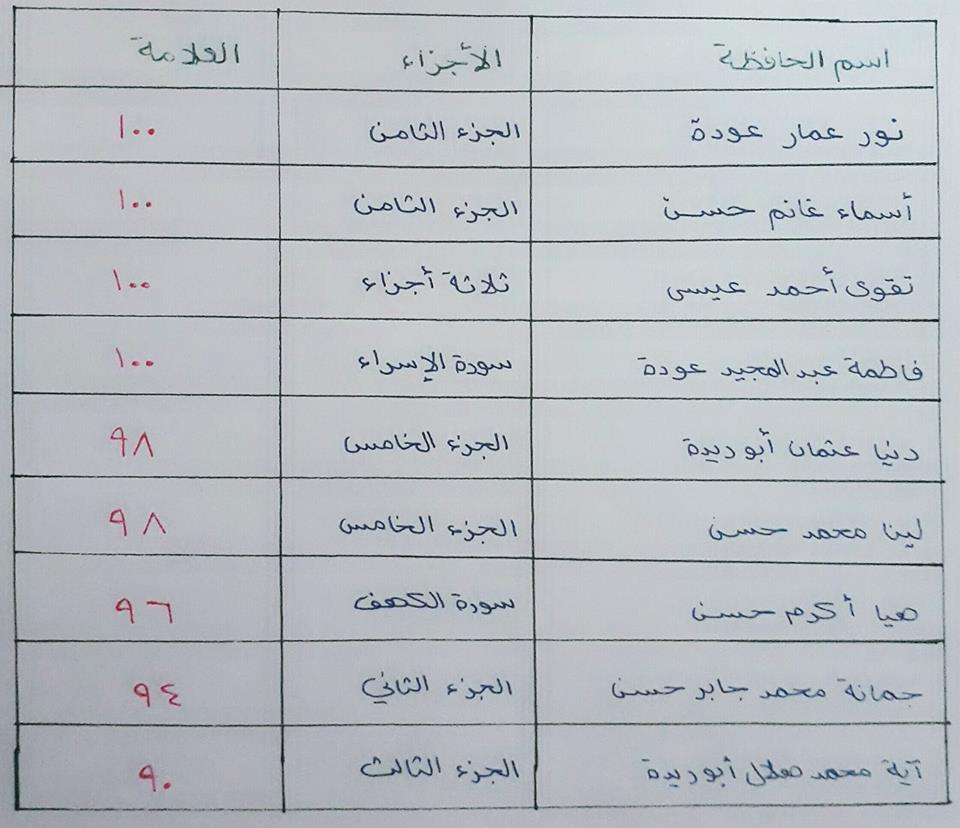 اسم الحافظة الأجزاء العلامة
نور عمار عودة الجزء الثامن ١٠٠
أسماء غانم حسن الجزء الثامن ١٠٠
تقوى أحمد عيسى ثلاثة أجزاء ١٠٠
فاطمة عبد المجيد عودة سورة الإسراء ١٠٠
دنيا عثمان أبو ديدة الجزء الخامس ٩٨
لينا محمد حسن الجزء الخامس ٩٨
هيا أكرم حسن سورة الكهف ٩٦
جمانة محمد جابر حسن الجزء الثاني ٩٤
آية محمد هلال أبو ديدة الجزء الثالث ٩٠